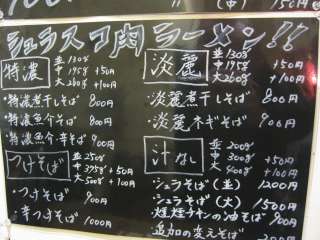 (中) 150円
シュラスコ肉ラーメン!!
特濃
並 130g
中 195g +50円
大 260g +100円
・特濃煮干しそば 800円
・特濃魚介そば 800円
・特濃魚介辛そば 900円
つけそば
並 250g
中 375g +50円
大 500g +100円
・つけそば 900円
・辛つけそば 1000円
淡麗
並 130g
中 195g +50円
大 260g +100円
・淡麗煮干しそば 800円
・淡麗ネギそば 900円
汁なし
並 200g
中 300g +50円
大 400g +100円
・シュラそば (並) 1200円
・シュラそば (大) 1500円
・煙煙チキンの油そば 900円
・追加の変えそば